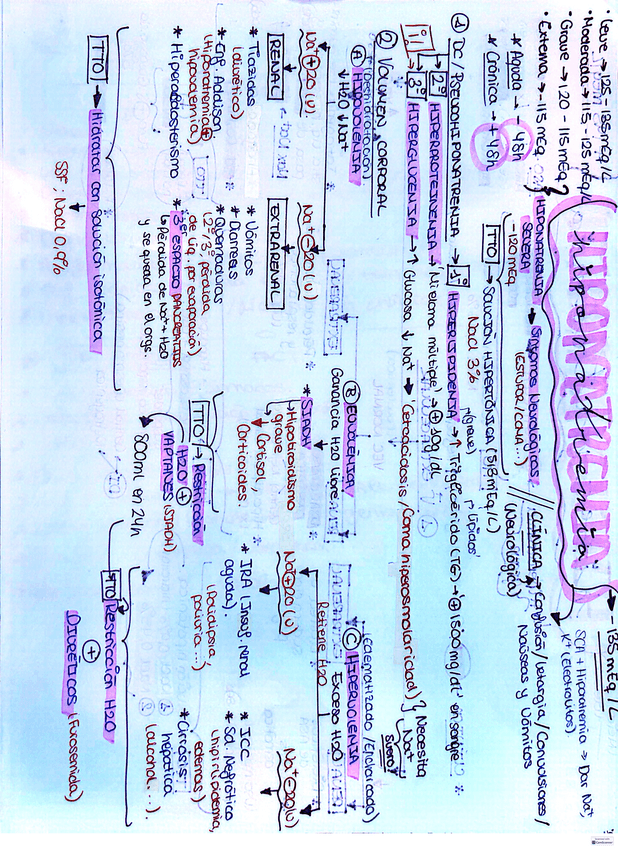 HIPONATREMIA → -135 mEq/L
hiponatremia
• Leve → 125 - 135 mEq/L
• Moderada → 115 - 125 mEq/L
• Grave → 120 - 115 mEq/L
• Extrema → -115 mEq
HIPONATREMIA SEVERA → Síntomas Neurológicos
(ESTUPOR/COMA...)
-120 mEq
* Aguda → - 48h
* Crónica → + 48h
TTO → SOLUCIÓN HIPERTÓNICA (513 mEq/L)
NaCl 3%
CLÍNICA → Confusión/Letargia/Convulsiones/
(Neurológica) Náuseas y Vómitos
SCA + Hiponatremia → Dar Na+,
K+ (Electrolitos)
① DC/PSEUDOHIPONATREMIA → 1º HIPERLIPIDEMIA → ↑ Triglicérido (TG) → ⊕ 1500 mg/dL en sangre
(grave) ↑ Lípidos
2º HIPERPROTEINEMIA → Mieloma múltiple → ⊕ 10g/dL
3º HIPERGLUCEMIA → ↑ Glucosa ↓ Na+ → Cetoacidosis/Coma hiperosmolaridad) } Necesita
Na+
Suero
② VOLUMEN CORPORAL
(Deshidratación)
Ⓐ HIPOVOLEMIA
↓H2O ↓Na+
Na+ ⊕ 20 (U)
RENAL
* Tiazidas
(diurético)
* Enf. Addison
(Hiponatremia ⊕
hipovolemia)
* Hiperaldosterismo
Na+ ⊖ 20 (U)
EXTRARENAL
* Vómitos
* Diarreas
* Quemaduras
(2º/3º, pérdida
de líq. por evaporación)
* 3er ESPACIO PANCREATITIS
↳ Pérdida de Na+ + H2O
y se queda en el orgs.
TTO → Hidratar con solución isotónica
SSF; NaCl 0,9%
Ⓑ EUVOLEMICA
Ganancia H2O libre
* SIADH
→ Hipotiroidismo
grave
→ Cortisol,
Corticoides.
TTO → Restricción
H2O ⊕
VAPTANES (SIADH)
800ml en 24h
(Edematizado/Encharcado)
Ⓒ HIPERVOLEMIA
Exceso H2O
Retiene H2O
Na+ ⊕ 20 (U)
* IRA (Insuf. renal
aguda).
(Polidipsia,
poliuria...)
Na+ - 20 (U)
* ICC
* Sd. Nefrótico
(hiperlipidemia,
edemas)
* Cirrosis
hepática
(alcohol...).
TTO Restricción H2O
⊕
DIURÉTICOS (Furosemida)